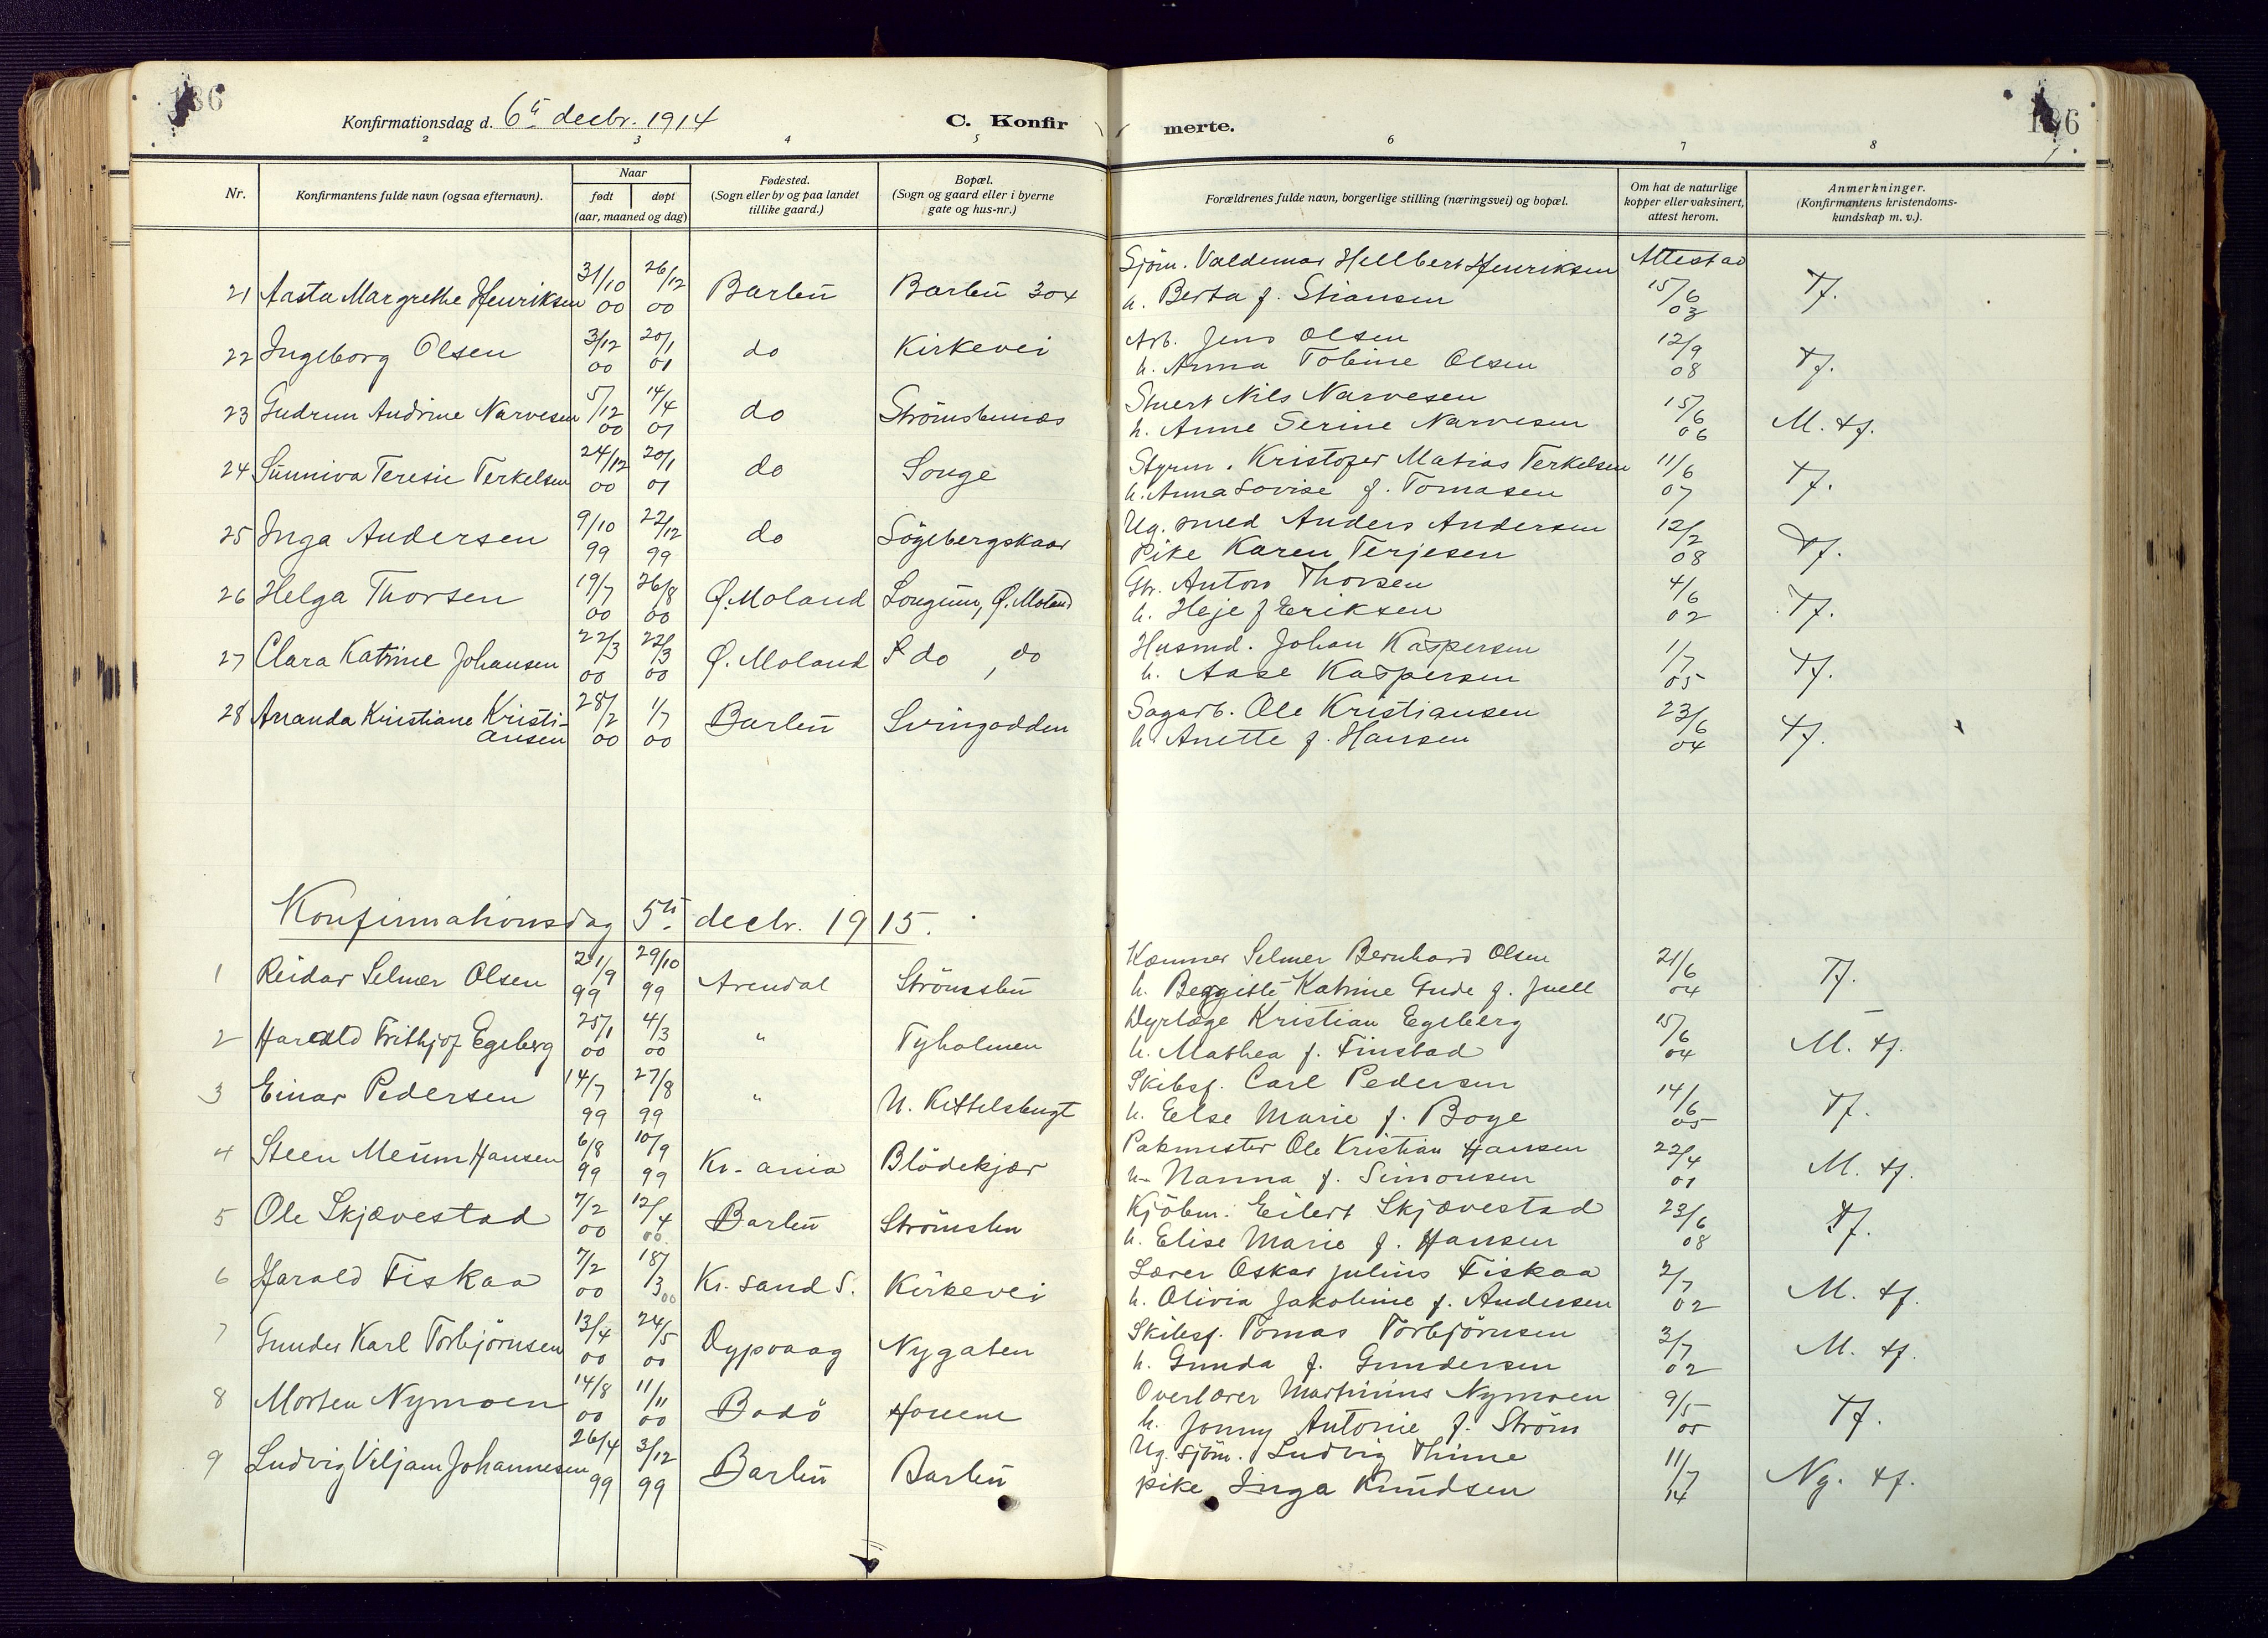 136
136
Konfirmationsdag d. 6te decbr. 1914
C. Konfir merte.
2 3 4 5 6 7 8
Nr.
Konfirmantens fulde navn (ogsaa efternavn).
Naar
født døpt
(aar, maaned og dag)
Fødested.
(Sogn eller by og paa landet
tillike gaard.)
Bopæl.
(Sogn og gaard eller i byerne
gate og hus-nr.)
Forældrenes fulde navn, borgerlige stilling (næringsvei) og bopæl.
Om hat de naturlige
kopper eller vaksinert,
attest herom.
Anmerkninger.
(Konfirmantens kristendoms-
kundskap m. v.).
21 Aasta Margrethe Henriksen 31/10 00 26/12 00 Barbu Barbu 304 Sjöm. Valdemar Hellbert Henriksen Attest ad
h. Berta f. Stiansen 15/6 03 Tf.
22 Ingeborg Olsen 3/12 00 20/1 01 do Kirkevei Arb. Jens Olsen
h. Anna Tobine Olsen 12/9 08 Tf.
23 Gudrun Andrine Narvesen 5/12 00 14/4 01 do Strömsbunæs Stuert Nils Narvesen
h. Anne Serine Narvesen 15/6 06 M. tf.
24 Sunniva Teresie Terkelsen 24/12 00 20/1 01 do Songe Styrm. Kristofer Matias Terkelsen
h. Anna Lovise f. Tomasen 11/6 07 Tf.
25 Inga Andersen 9/10 99 22/12 99 do Sögebergskaar Ug. smed Anders Andersen
Pike Karen Terjesen 12/2 08 Tf.
26 Helga Thorsen 19/7 00 26/8 00 Ø. Moland Longum, Ø. Moland Gbr. Anton Thorsen
h. Heje f Eriksen 4/6 02 Tf.
27 Clara Katrine Johansen 22/3 00 22/3 00 Ø. Moland do , do Husmd. Johan Kaspersen
h. Aase Kaspersen 1/7 05 Tf.
28 Amanda Kristiane Kristi-
ansen 28/2 00 1/7 00 Barbu Svingodden Sagarb. Ole Kristiansen
h. Anette f. Hansen 23/6 04 Tf.
Konfirmationsdag 5te decbr. 1915.
1 Reidar Selmer Olsen 21/9 99 29/10 99 Arendal Strömsbu Kæmner Selmer Bernhard Olsen
h. Beggitte Katrine Gude f. Juell 21/6 04 Tf.
2 Harald Frithjof Egeberg 25/1 00 4/3 00 " Tyholmen Dyrlæge Kristian Egeberg
h. Mathea f. Finstad 15/6 04 M. tf.
3 Einar Pedersen 14/7 99 27/8 99 " N. Kittelsbugt Skibsf. Carl Pedersen
h. Else Marie f. Boye 14/6 05 Tf.
4 Steen Meum Hansen 6/8 99 10/9 99 Kr-ania Blödekjær Pakmester Ole Kristian Hansen
h. Nanna f. Simonsen 22/4 01 M. tf.
5 Ole Skjævestad 7/2 00 12/4 00. Barbu Strömsbu Kjöbm. Eilert Skjævestad
h. Elise Marie f. Hansen 23/6 08 Tf.
6 Harald Fiskaa 7/2 00 18/3 00 Kr. sand S. Kirkevei Lærer Oskar Julius Fiskaa
h. Olivia Jakobine f. Andersen 2/7 02 M. tf.
7 Gunder Karl Torbjörnsen 13/4 00 24/5 00 Dypvaag Nygaten Skibsf. Tomas Torbjörnsen
h. Gunda f. Gundersen 3/7 02 M. tf.
8 Morten Nymoen 14/8 00 11/11 00 Bodö Hovene Overlærer Martinius Nymoen
h. Jonny Antonie f. Ström 9/5 05 Tf.
9 Ludvig Viljam Johannesen 26/4 99 3/12 99 Barbu Barbu Ug. sjöm. Ludvig Thime
pike Inga Knudsen 11/7 14 Ng. tf.